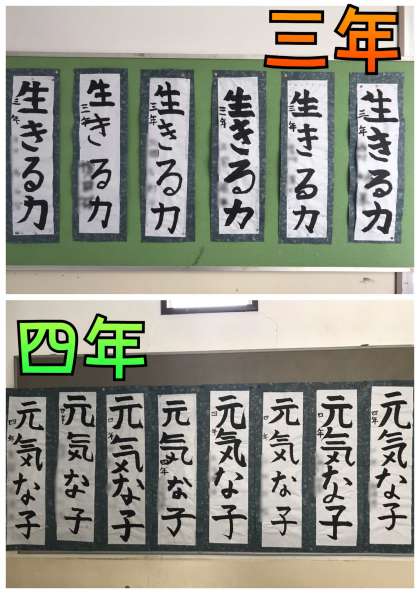 三年
生きる力
三年
生きる力
三年
生きる力
三年
生きる力
三年
生きる力
三年
生きる力
三年
四年
元気な子
四年
元気な子
四年
元気な子
四年
元気な子
四年
元気な子
四年
元気な子
四年
元気な子
四年
元気な子
四年